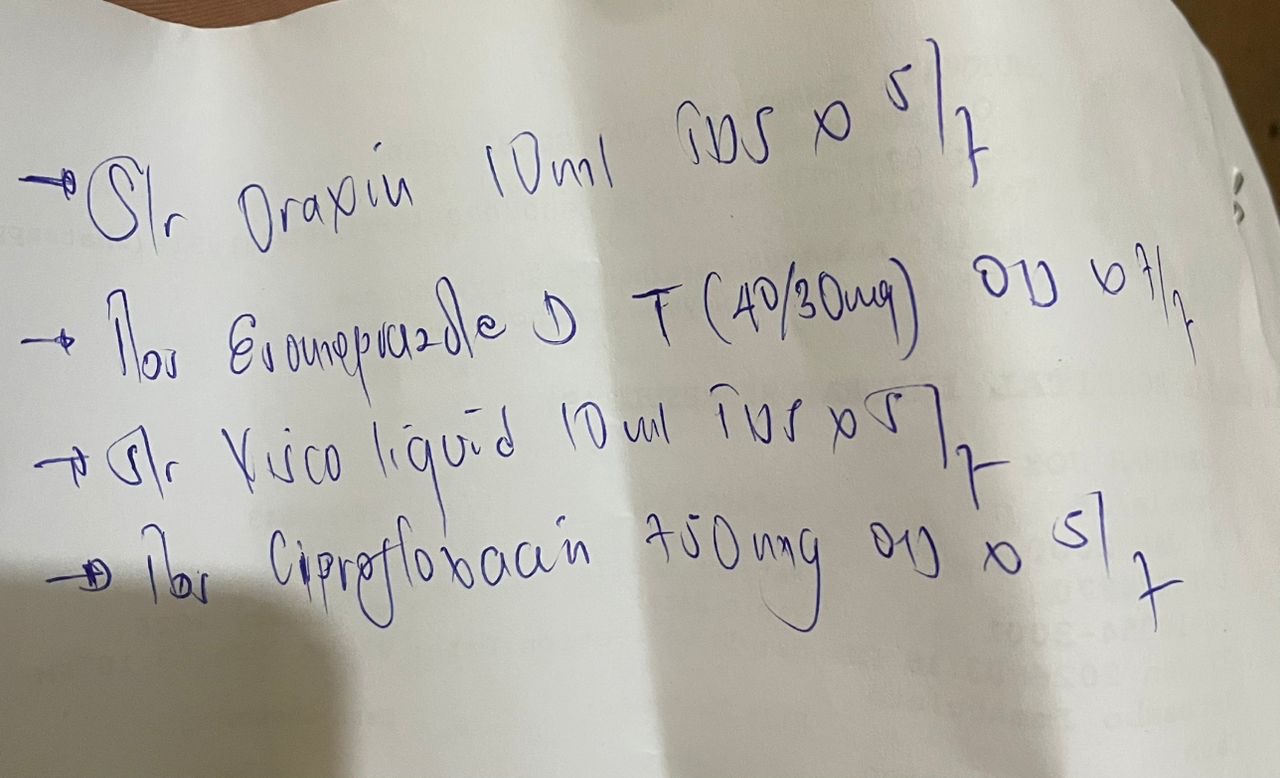 → S/r Oraxin 10ml TDS x 5/7
→ Tbs Esomeprazole D T (40/30mg) OD x 7/7
→ S/r Visco liquid 10ml TDS x 5/7
→ Tbs Ciprofloxacin 750mg OD x 5/7